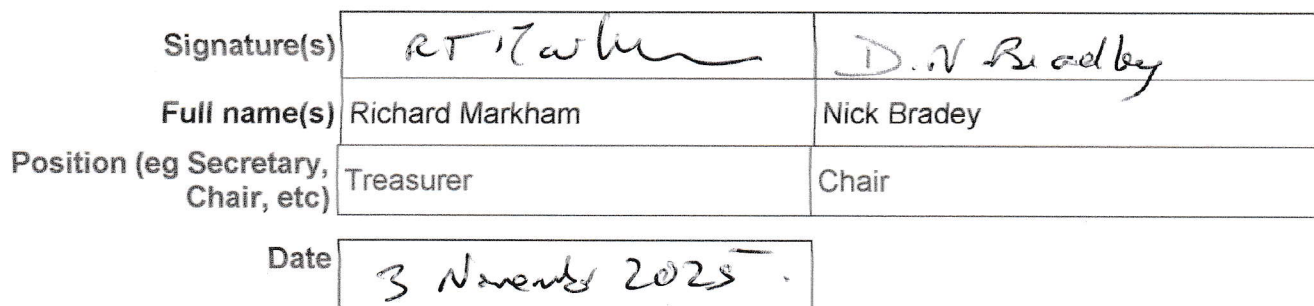 Signature(s) RT Markham D.N Bradley
Full name(s) Richard Markham Nick Bradey
Position (eg Secretary, Chair, etc) Treasurer Chair
Date 3 November 2025.